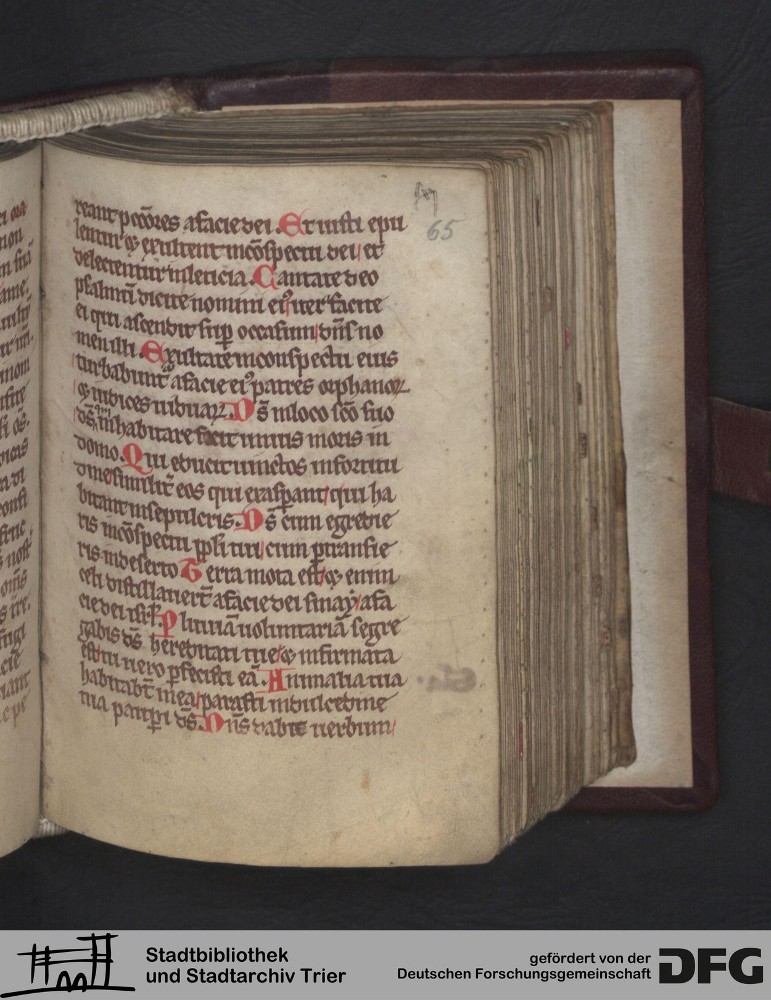 65
reant pccōres a facie dei. Et iusti epu
lentur ⁊ exultent in cōspectu dei/ et
delectentur in leticia. Cantate deo
psalmū dicite nomini eiꝰ iter facite
ei qui ascendit suꝑ occasum/ dn̄s no
men illi. Exultate in conspectu eius
turbabunt̄ a facie eiꝰ patres orphanoꝝ
⁊ iudices uiduaꝝ. Ds̄ in loco sc̄o suo
ds̄ inhabitare facit unius moris in
domo. Qui educit uinctos in fortitu
dine/ similit̄ eos qui exasꝑant/ qui ha
bitant in sepulcris. Ds̄ cum egrede
ris in cōspectu ppli tui/ cum ꝑtransie
ris in deserto Terra mota est/ ⁊ enim
celi distillauer̄t a facie dei sinay/ a fa
cie dei isrl̄. Pluuiā uoluntariā segre
gabis ds̄ hereditati tue/ ⁊ infirmata
est/ tu uero ꝑfecisti eā. Animalia tua
habitabt̄ in ea/ parasti in dulcedine
tua pauꝑi ds̄. Dn̄s dabit uerbum/
Stadtbibliothek
und Stadtarchiv Trier
gefördert von der
Deutschen Forschungsgemeinschaft
DFG